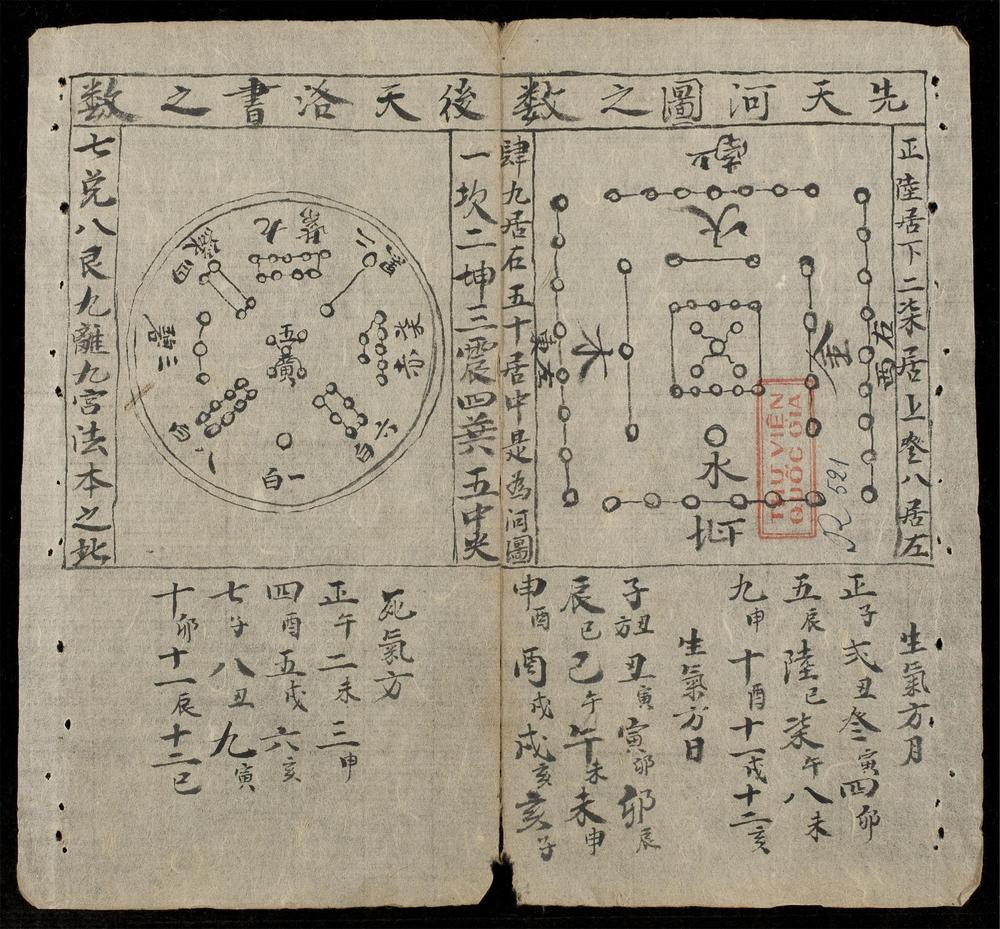 先天河圖之数
後天洛書之数
正陸居下二柒居上叄八居左
肆九居右五十居中是為河圖
南上
火
右西
金
木
東左
水
下北
THƯ VIỆN
QUỐC GIA
R 521
一坎二坤三震四巽五中央
七兌八艮九離九宮法本之此
九紫
二黑
四綠
柒赤
三碧
五黃
六白
八白
一白
生氣方月
正子弍丑叄寅四卯
五辰陸巳柒午八未
九申十酉十一戌十二亥
生氣方日
子丑方丑寅寅卯卯辰
辰巳巳午午未未申
申酉酉戌戌亥亥子
死氣方
正午二未三申
四酉五戌六亥
七子八丑九寅
十卯十一辰十二巳